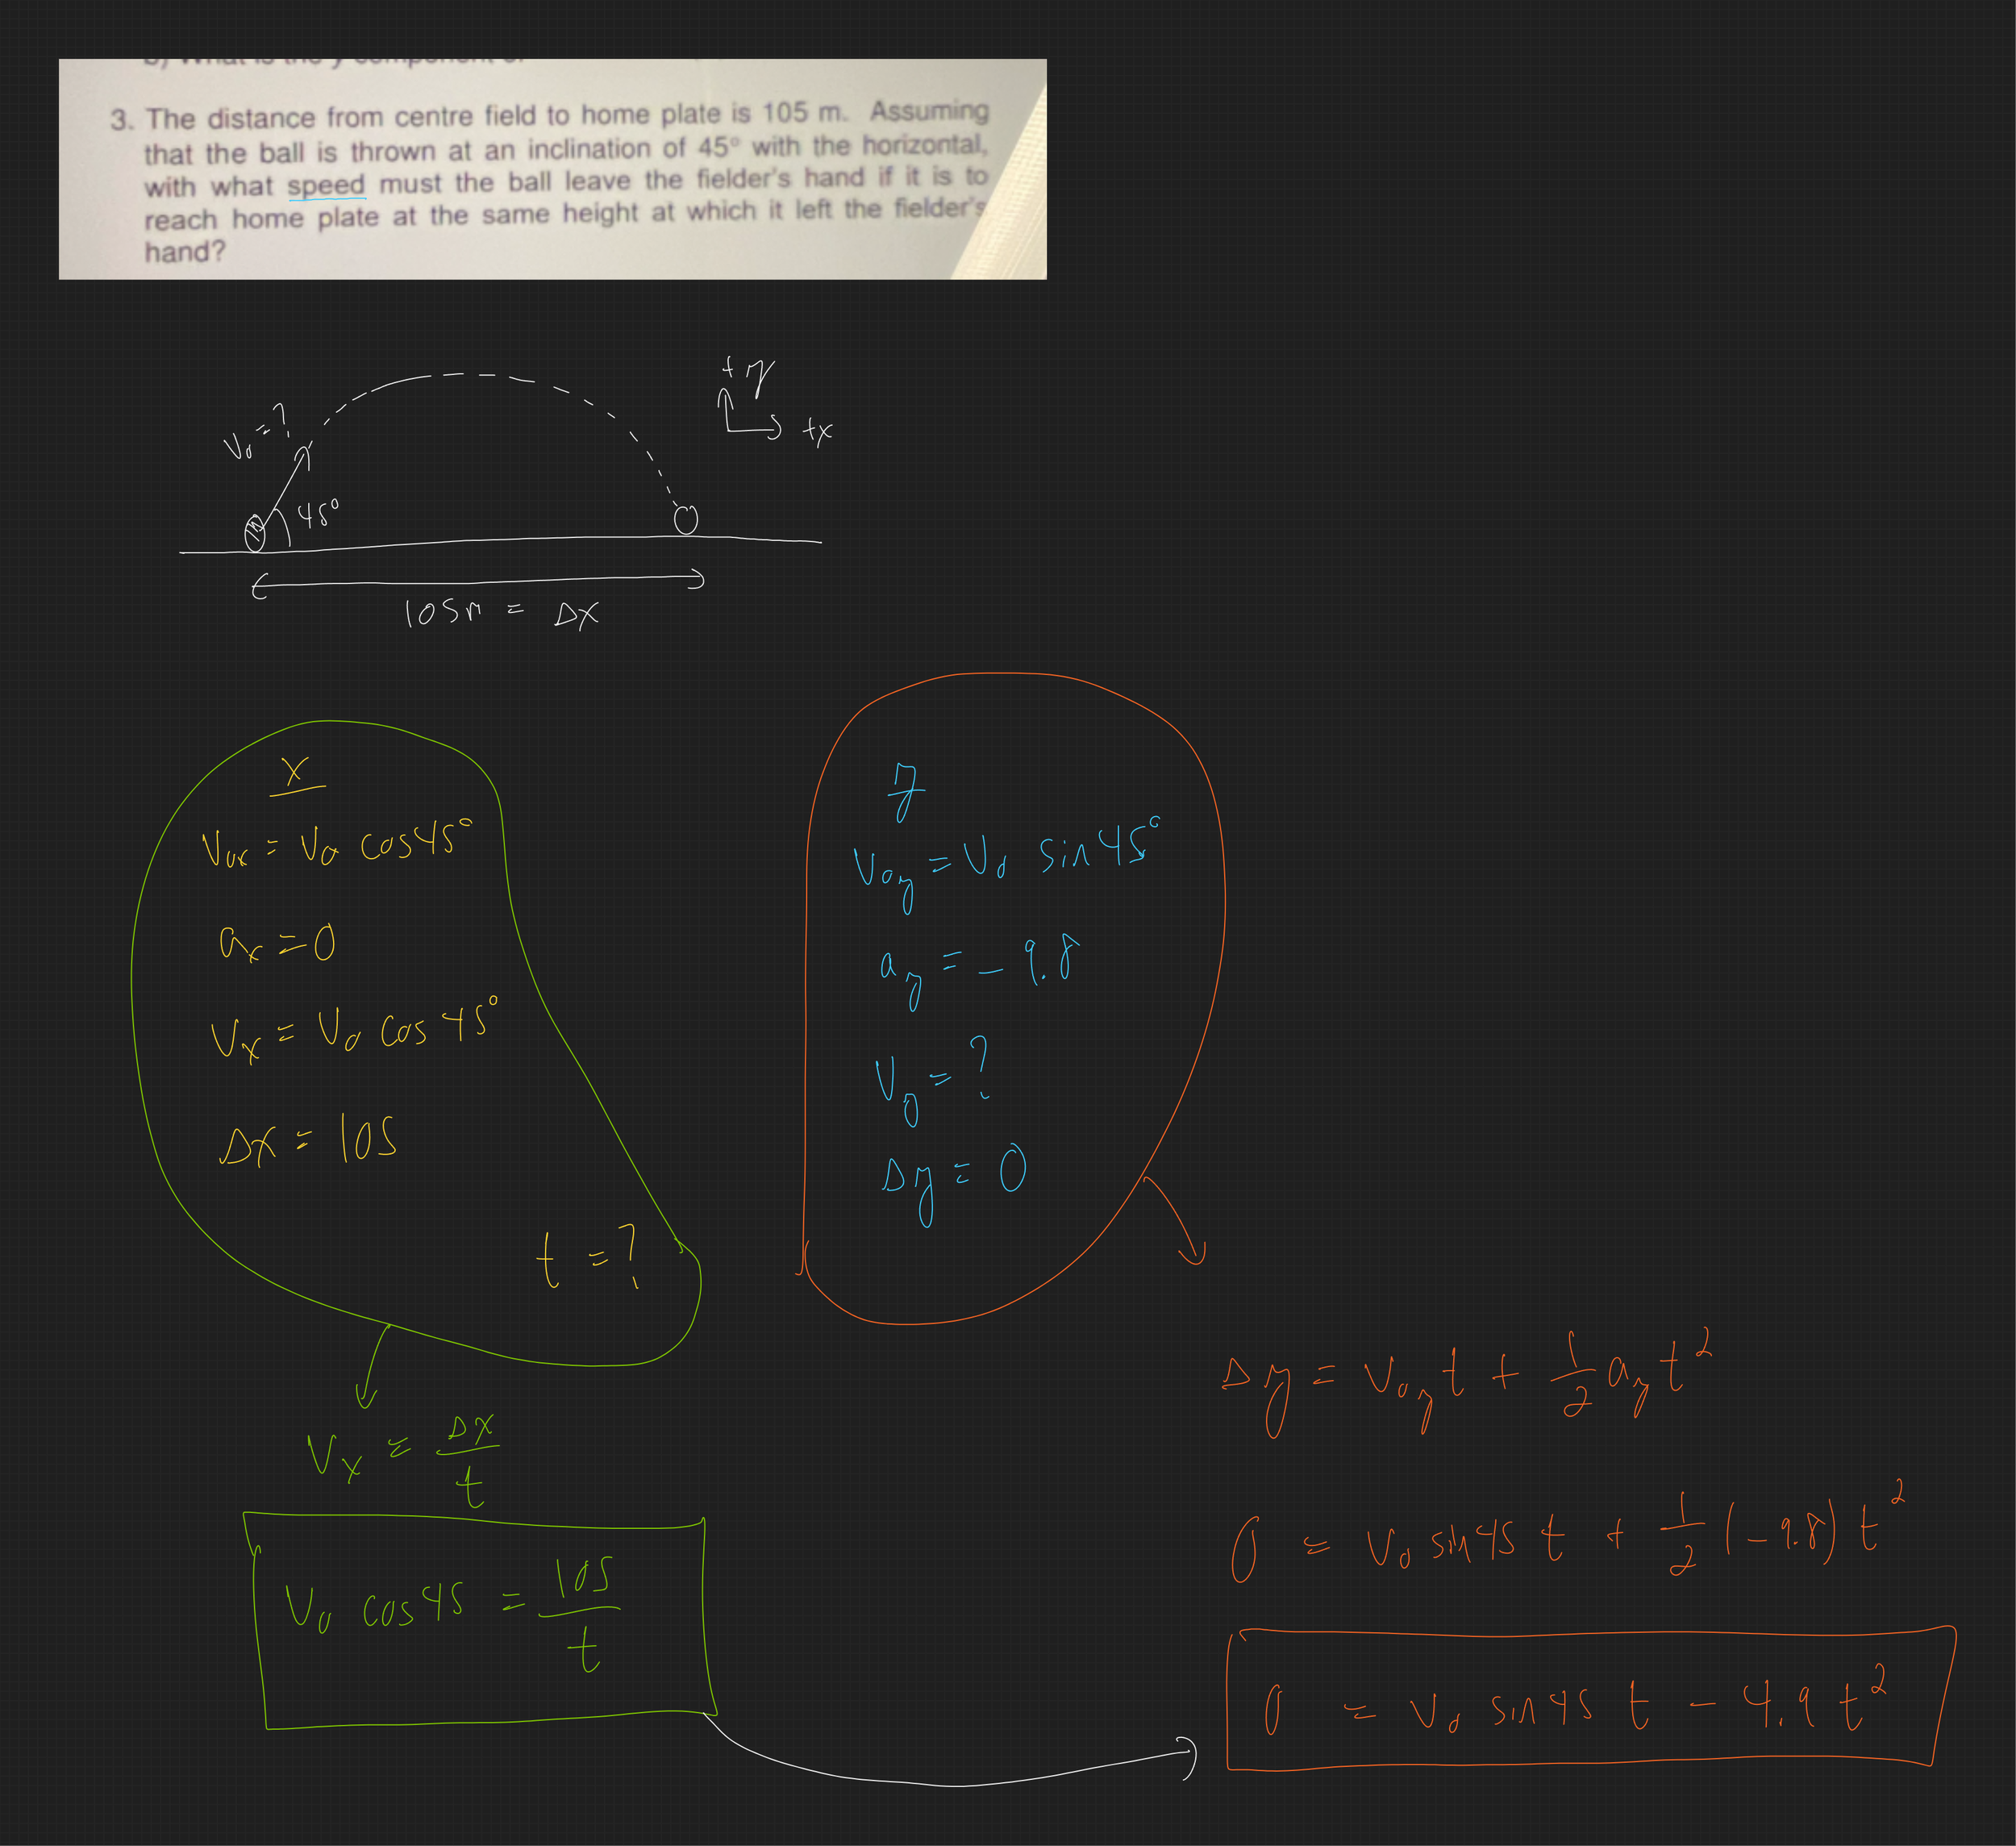 3. The distance from centre field to home plate is 105 m. Assuming
that the ball is thrown at an inclination of 45° with the horizontal,
with what speed must the ball leave the fielder's hand if it is to
reach home plate at the same height at which it left the fielder's
hand?
+y
+x
V₀ = ?
45°
105m = Δx
x
V₀ₓ = V₀ cos45°
aₓ = 0
Vₓ = V₀ cos45°
Δx = 105
t = ?
y
V₀y = V₀ sin45°
ay = -9.8
Vy = ?
Δy = 0
Vₓ = Δx/t
V₀ cos45 = 105/t
Δy = V₀y t + 1/2 ay t²
0 = V₀ sin45 t + 1/2 (-9.8) t²
0 = V₀ sin45 t - 4.9 t²